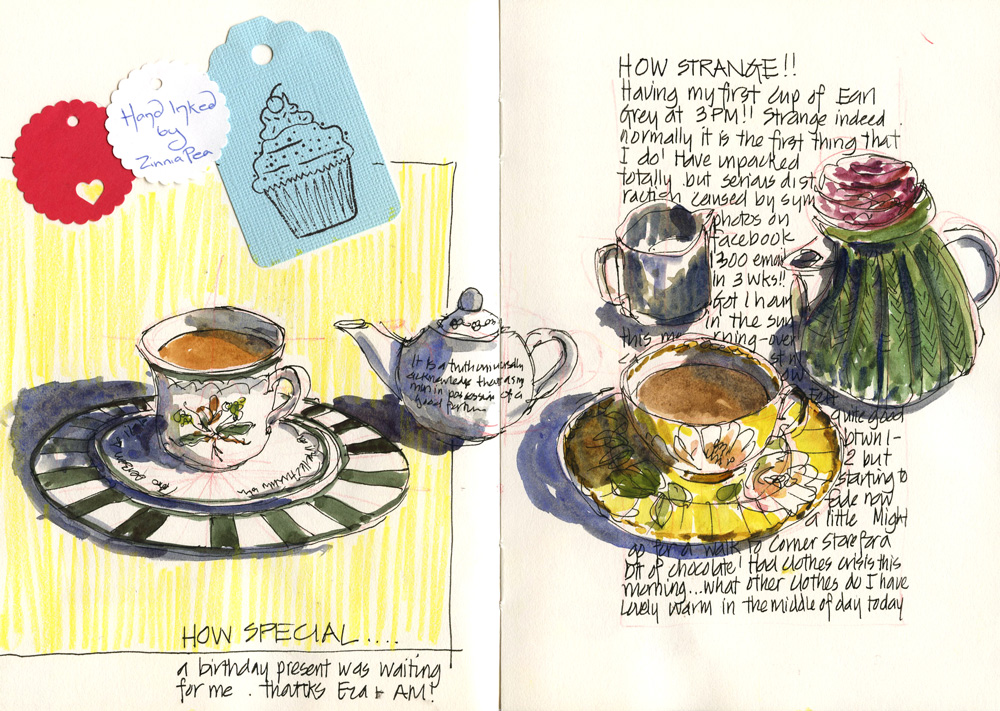 Hand Inked
by
Zinnia Pea
It is a truth universally
acknowledged that a
man in possession of a
good fortune
HOW SPECIAL....
a birthday present was waiting
for me. thanks Eza + AM!
HOW STRANGE!!
Having my first cup of Earl
Grey at 3PM!! Strange indeed.
normally it is the first thing that
I do! Have unpacked
totally but serious dist
raction caused by sym
photos on
facebook
1300 email
in 3 wks!!
Got 1 hour
in the sun
this morning-over
felt
quite good
btwn 1-
2 but
starting to
fade now
a little Might
go for a walk to corner store for a
bit of chocolate! Had clothes crisis this
morning...what other clothes do I have
Lovely warm in the middle of day today